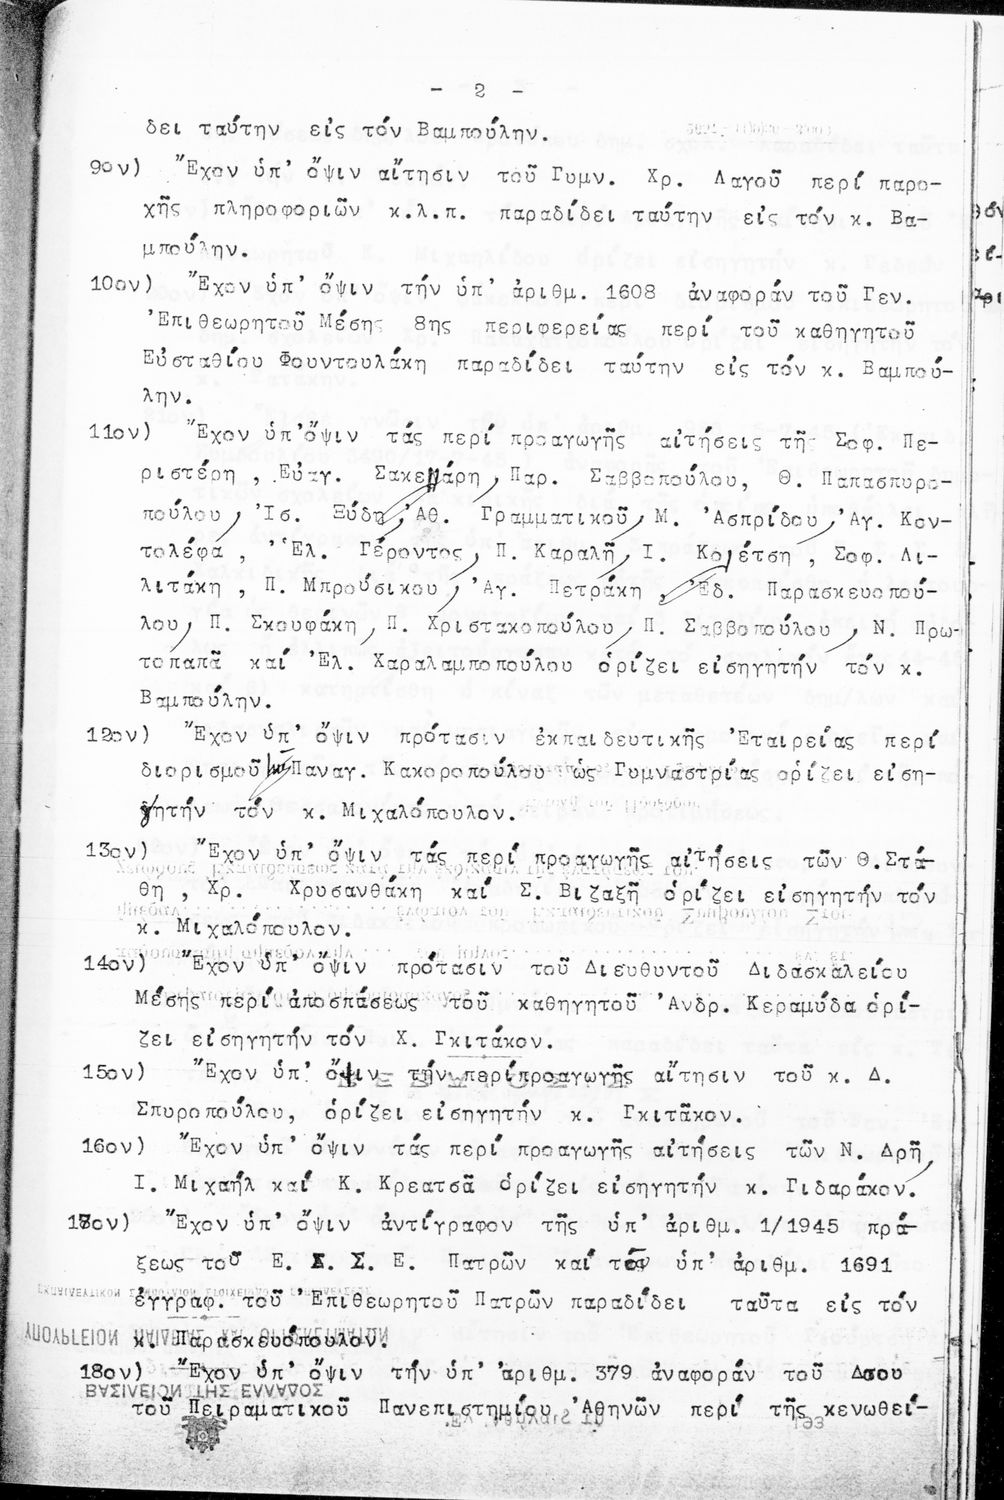 - 2 -
δει ταύτην εἰς τόν Βαμπούλην.
9ον) Ἔχον ὑπ' ὄψιν αἴτησιν τοῦ Γυμν. Χρ. Λαγοῦ περί παρο-
χῆς πληροφοριῶν κ.λ.π. παραδίδει ταύτην εἰς τόν κ. Βα-
μπούλην.
10ον) Ἔχον ὑπ' ὄψιν τήν ὑπ' ἀριθμ. 1608 ἀναφοράν τοῦ Γεν.
Ἐπιθεωρητοῦ Μέσης 8ης περιφερείας περί τοῦ καθηγητοῦ
Εὐσταθίου Φουντουλάκη παραδίδει ταύτην εἰς τόν κ. Βαμπού-
λην.
11ον) Ἔχον ὑπ'ὄψιν τάς περί προαγωγῆς αἰτήσεις τῆς Σοφ. Πε-
ριστέρη, Εὐαγ. Σακελλάρη, Παρ. Σαββοπούλου, Θ. Παπασπυρο-
πούλου, Ἰσ. Ξύδη, Ἀθ. Γραμματικοῦ, Μ. Ἀσπρίδου, Ἀγ. Κον-
τολέφα, Ἑλ. Γέροντος, Π. Καραλῆ, Ι. Κολέτση, Σοφ. Λι-
λιτάκη, Π. Μπρούσικου, Ἀγ. Πετράκη, Ἐδ. Παρασκευοπού-
λου, Π. Σκουφάκη, Π. Χριστακοπούλου, Π. Σαββοπούλου, Ν. Πρω-
τοπαπᾶ καί Ἑλ. Χαραλαμποπούλου ὁρίζει εἰσηγητήν τόν κ.
Βαμπούλην.
12ον) Ἔχον ὑπ' ὄψιν πρότασιν ἐκπαιδευτικῆς Ἑταιρείας περί
διορισμοῦ Παναγ. Κακοροπούλου ὡς Γυμναστρίας ὁρίζει εἰση-
γητήν τόν κ. Μιχαλόπουλον.
13ον) Ἔχον ὑπ' ὄψιν τάς περί προαγωγῆς αἰτήσεις τῶν Θ. Στά-
θη, Χρ. Χρυσανθάκη καί Σ. Βιζαξῆ ὁρίζει εἰσηγητήν τόν
κ. Μιχαλόπουλον.
14ον) Ἔχον ὑπ' ὄψιν πρότασιν τοῦ Διευθυντοῦ Διδασκαλείου
Μέσης περί ἀποσπάσεως τοῦ καθηγητοῦ Ἀνδρ. Κεραμύδα ὁρί-
ζει εἰσηγητήν τόν Χ. Γκιτάκον.
15ον) Ἔχον ὑπ' ὄψιν τήν περί προαγωγῆς αἴτησιν τοῦ κ. Δ.
Σπυροπούλου, ὁρίζει εἰσηγητήν κ. Γκιτᾶκον.
16ον) Ἔχον ὑπ' ὄψιν τάς περί προαγωγῆς αἰτήσεις τῶν Ν. Δρῆ,
Ι. Μιχαήλ καί Κ. Κρεατσᾶ ὁρίζει εἰσηγητήν κ. Γιδαράκον.
17ον) Ἔχον ὑπ' ὄψιν ἀντίγραφον τῆς ὑπ' ἀριθμ. 1/1945 πρά-
ξεως τοῦ Ε. Σ. Σ. Ε. Πατρῶν καί τό ὑπ' ἀριθμ. 1691
ἔγγραφ. τοῦ Ἐπιθεωρητοῦ Πατρῶν παραδίδει ταῦτα εἰς τόν
κ. Παρασκευόπουλον.
18ον) Ἔχον ὑπ' ὄψιν τήν ὑπ' ἀριθμ. 379 ἀναφοράν τοῦ Δσου
τοῦ Πειραματικοῦ Πανεπιστημίου Ἀθηνῶν περί τῆς κενωθεί-